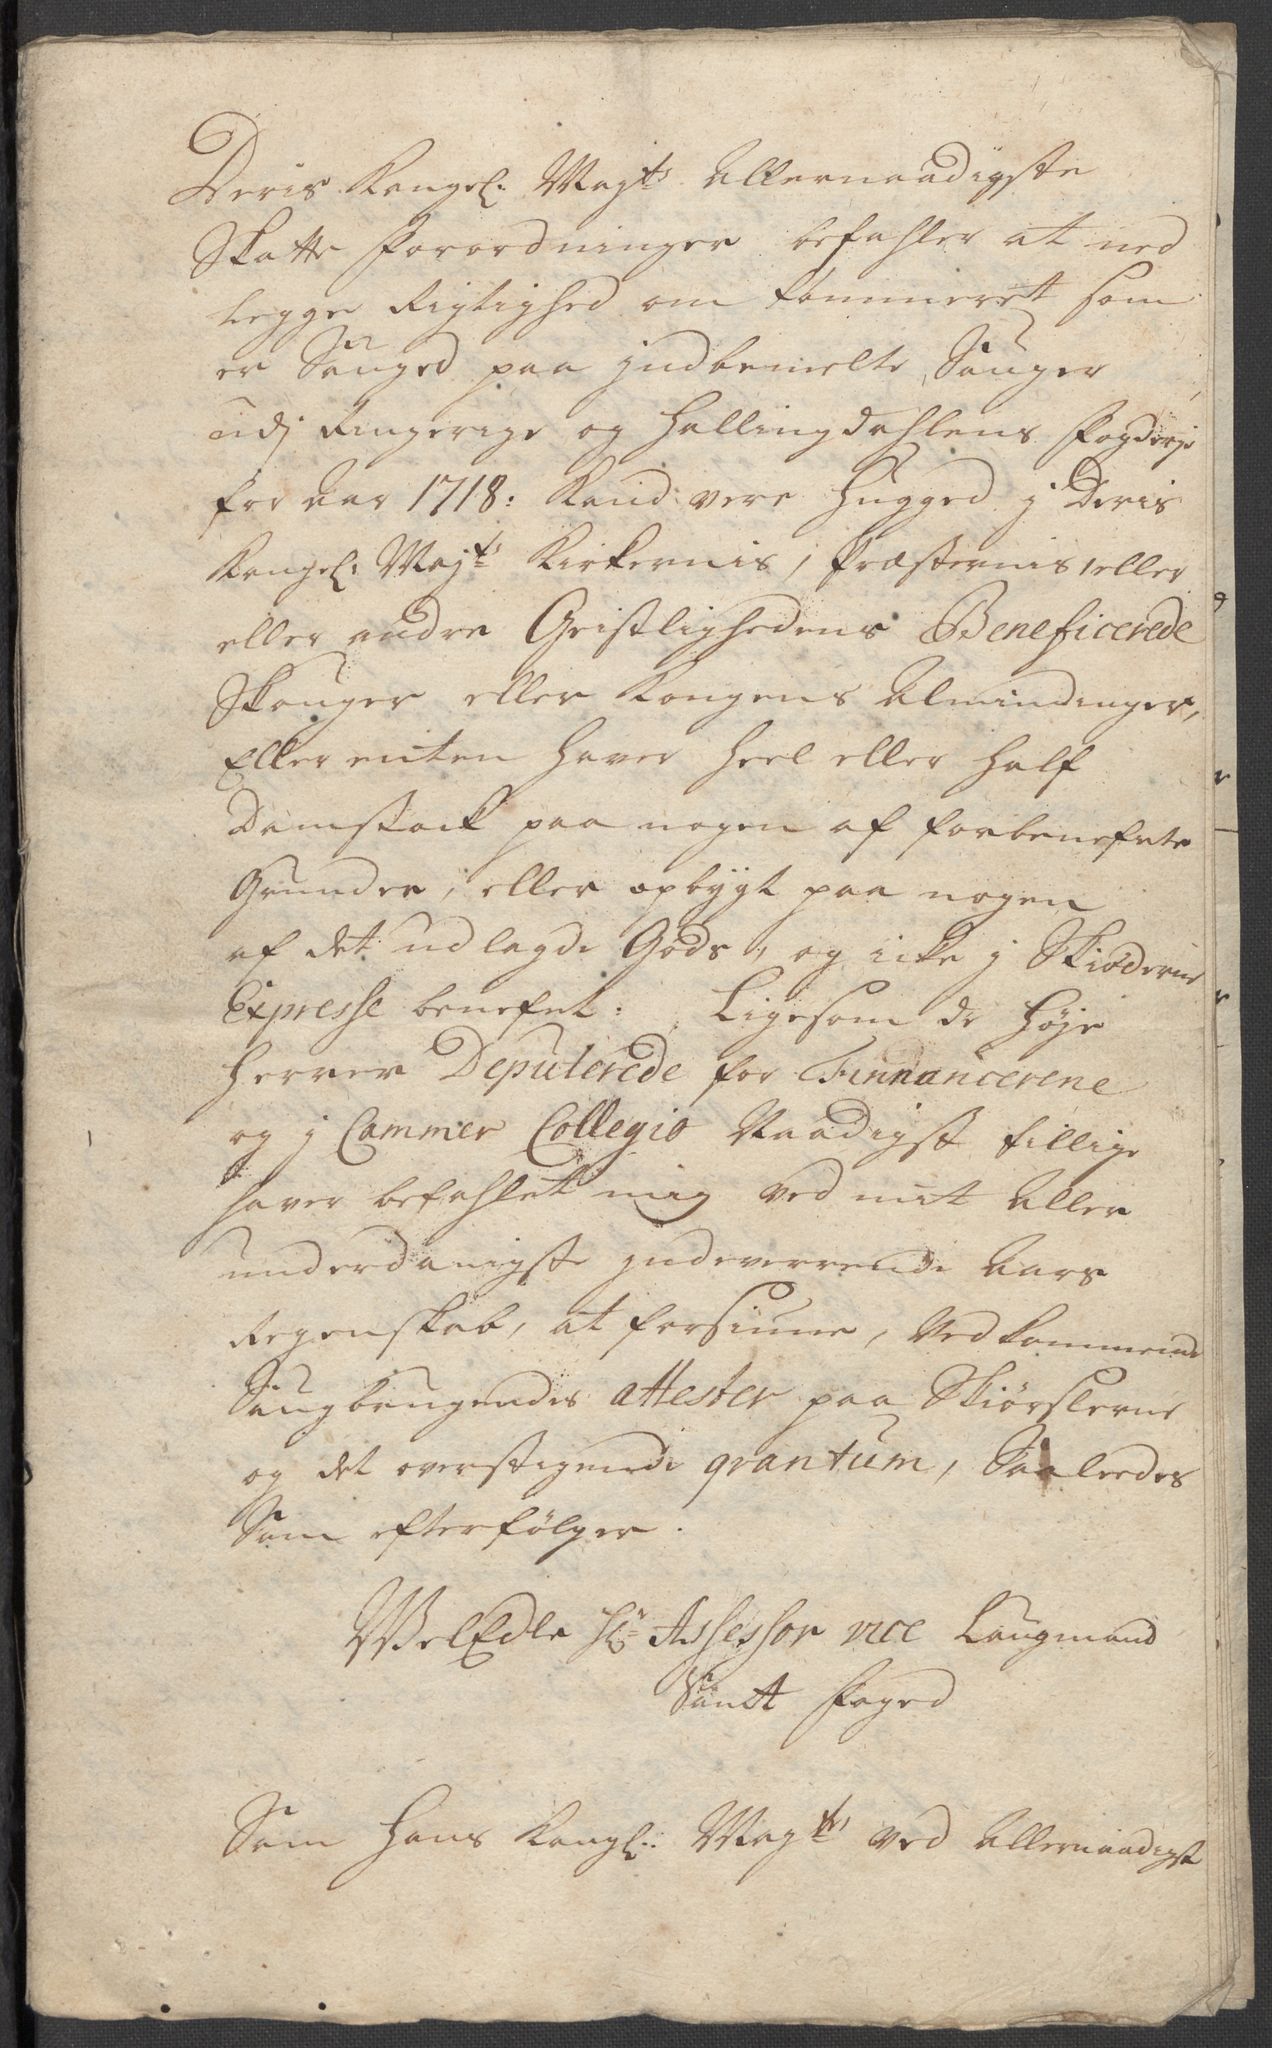 Deris Kongel: Mayts Allernaadigste
Skatte Forordninger befahler at ned
legge Rigtighed om Tømmeret som
er Sauged paa jndbemelte Sauger
udj Ringerige og Hallingdahlens Fogderje
for Aar 1718: Kand vere hugged j Deris
Kongel: Mayts Kirkernis, Præsternis, eller
eller andre Geistlighedens Beneficerede
Skouger eller Kongens Almindinger,
Eller enten haver heel eller half
Damstock paa nogen af forbenefnte
Grunder, eller opbygt paa nogen
af det udlagde Gods, og icke j Skiøderne
Expresse benefnt: Ligesom de høje
Herrer Deputerede for Finnancerene
og j Cammer Collegio Naadigst tillige
haver befahlet mig ved mit Aller
underdanigste jndeverrende Aars
Regenskab, at forsiune, Vedkommende
Saugbrugendis attester paa Skiørslerne
og det overstigende qvantum, Saaleedes
Som efterfølger.
WelEdle Hr Assessor vice Laugmand
Samt Foged
Som Hans Kongl: Mayts ved Allernaadigst